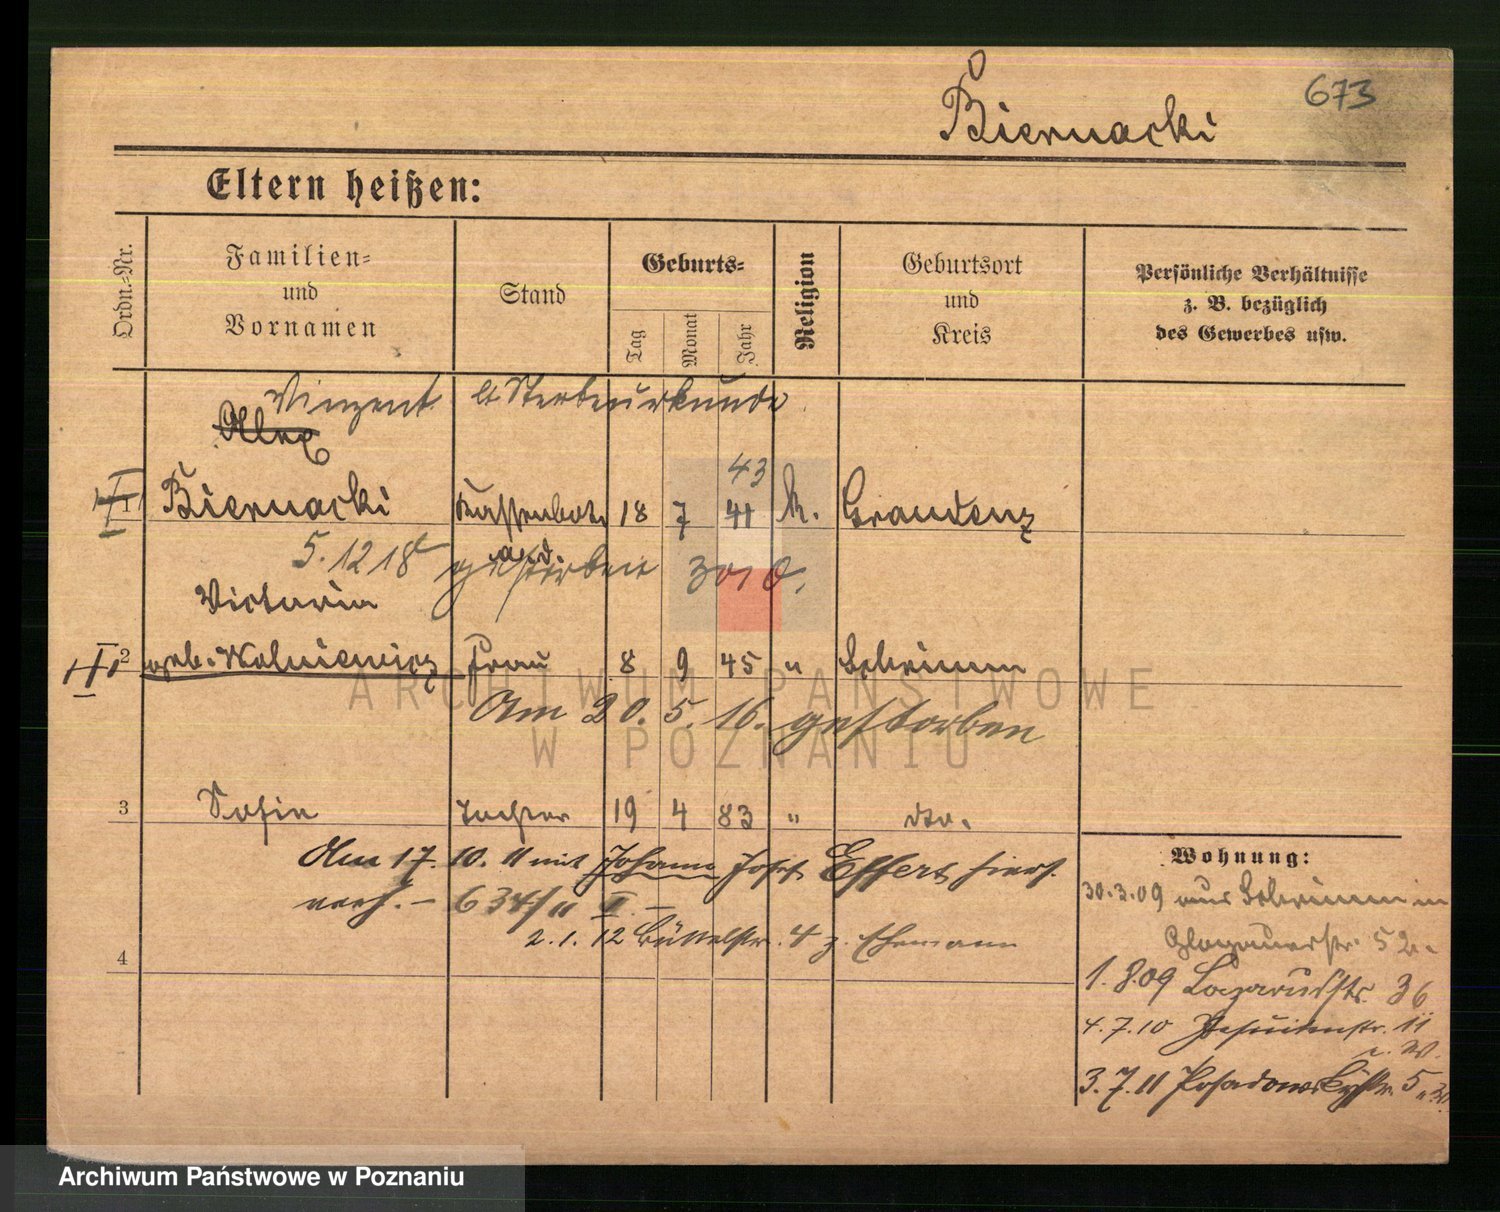 673
Biernacki
Eltern heißen:
Ordn.-Nr.
Familien-
und
Vornamen
Stand
Geburts-
Tag
Monat
Jahr
Religion
Geburtsort
und
Kreis
Persönliche Verhältnisse
z. B. bezüglich
des Gewerbes usw.
Vinzent lt Sterbeurkunde
Alex
43
1 Biernacki Kassenbote 18 7 41 k. Graudenz
a. D.
5.12.18 gestorben
Victoria
2 geb. Wolniewicz Frau 8 9 45 " Schrimm
Am 20.5.16. gestorben
3 Sofie Tochter 19 4 83 " dto.
Am 17. 10. 11 mit Johann Josef Effert hiers.
verh. – 634/11 II –
2. 1. 12 Büttelstr. 4 z. Ehemann
4
Wohnung:
30.3.09 aus Schrimm in
Glogauerstr. 52.
1.8.09 Lazarusstr. 36
4.7.10 Jesuitenstr. 11
3.7.11 Posadowskystr. 5
ARCHIWUM PAŃSTWOWE
W POZNANIU
Archiwum Państwowe w Poznaniu